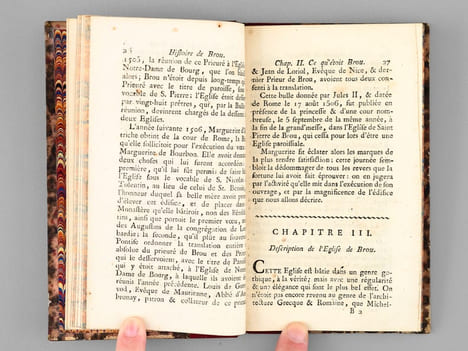 26 Histoire de Brou.
1505, la réunion de ce Prieuré à l'Egl
Notre-Dame de Bourg, que l'on
alors; Brou n'étoit depuis long-temp
Prieuré avec le titre de paroisse, fu
vocable de S. Pierre: l'Eglise étoit def
par vingt-huit prêtres, qui, par la Bull
réunion, devinrent chargés de la desser
deux Eglises.
L'année suivante 1506, Marguerite d'
triche obtint de la cour de Rome, la
qu'elle sollicitoit pour l'exécution du vœu
Marguerite de Bourbon. Elle avoit dem
deux choses qui lui furent accordée
première, qu'il lui fût permis de faire
l'Eglise sous le vocable de S. Nicolas
Tolentin, au lieu de celui de St. Benoî
l'honneur duquel sa belle mère avoit pro
d'élever cet édifice, et de placer da
Monastère qu'elle bâtiroit, non des Bénéd
tins, ainsi que portoit le premier vœu,
des Augustins de la congrégation de Lo
bardie: la seconde, qu'il plût au souve
Pontife ordonner la translation entière
absolue du prieuré de Brou et des Prêt
qui le desservoient, avec le titre de Paroi
qui y étoit attaché, à l'Eglise de Notr
Dame de Bourg, à laquelle ils avoient é
réunis l'année précédente. Louis de Gor
vod, Evêque de Maurienne, Abbé d'Am
bronay, patron & collateur de ce prieu
Chap. II. Ce qu'étoit Brou. 27
& Jean de Loriol, Evêque de Nice, & der
nier Prieur de Brou, avoient tous deux con-
senti à la translation.
Cette bulle donnée par Jules II, & datée
de Rome le 17 août 1506, fut publiée en
présence de la princesse & d'une cour nom-
breuse, le 5 septembre de la même année, à
la fin de la grand'messe, dans l'Eglise de Saint
Pierre de Brou, qui cessa pour lors d'être une
Eglise paroissiale.
Marguerite fit éclater alors les marques de
la plus tendre satisfaction; cette journée sem-
bloit la dédommager de tous les revers que la
fortune lui avoit fait éprouver: on en jugera
par l'activité qu'elle mit dans l'exécution de son
ouvrage, et par la magnificence de l'édifice
que nous allons décrire.
CHAPITRE III.
Description de l'Eglise de Brou.
CETTE Eglise est bâtie dans un genre go-
thique, à la vérité; mais avec une régularité
& une élégance qui sont le plus bel effet. On
n'étoit pas encore revenu au genre de l'archi-
tecture Grecque & Romaine, que Michel-
B 2